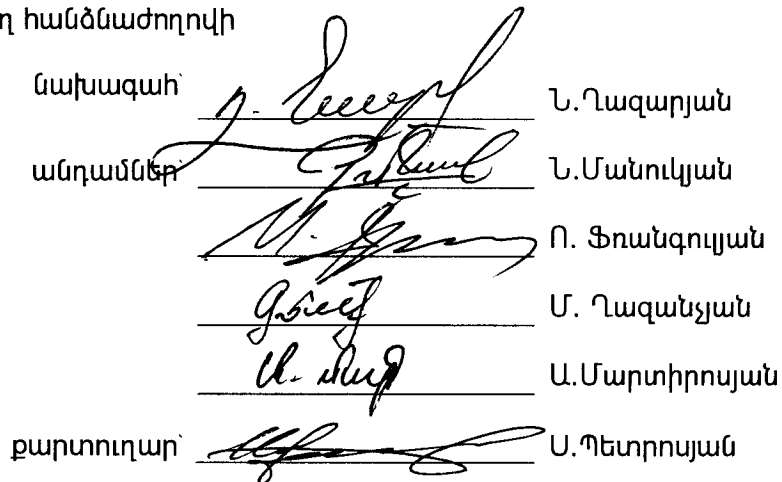 ղ հանձնաժողովի
նախագահ՝ Ն.Ղազարյան
անդամներ՝ Ն.Մանուկյան
Ո. Ֆռանգուլյան
Մ. Ղազանչյան
Ա.Մարտիրոսյան
քարտուղար՝ Ս.Պետրոսյան